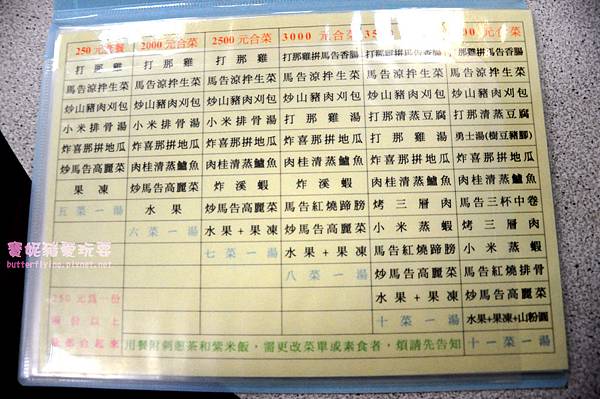 250 元套餐 2000 元合菜 2500 元合菜 3000 元合菜
打那雞 打那雞 打那雞 打那雞拼馬告香腸 打那雞拼馬告香腸 打那雞拼馬告香腸
馬告涼拌生菜 馬告涼拌生菜 馬告涼拌生菜 馬告涼拌生菜 馬告涼拌生菜 馬告涼拌生菜
炒山豬肉刈包 炒山豬肉刈包 炒山豬肉刈包 炒山豬肉刈包 炒山豬肉刈包 炒山豬肉刈包
小米排骨湯 小米排骨湯 小米排骨湯 打那雞湯 打那清蒸豆腐 打那清蒸豆腐
炸喜那拼地瓜 炸喜那拼地瓜 炸喜那拼地瓜 炸喜那拼地瓜 打那雞湯 勇士湯(樹豆豬腳)
炒馬告高麗菜 肉桂清蒸鱸魚 肉桂清蒸鱸魚 肉桂清蒸鱸魚 炸喜那拼地瓜 炸喜那拼地瓜
果凍 炒馬告高麗菜 炸溪蝦 炸溪蝦 肉桂清蒸鱸魚 肉桂清蒸鱸魚
五菜一湯 水果 炒馬告高麗菜 馬告紅燒蹄膀 烤三層肉 馬告三杯中卷
六菜一湯 水果+果凍 炒馬告高麗菜 小米蒸蝦 烤三層肉
七菜一湯 水果+果凍 馬告紅燒蹄膀 小米蒸蝦
八菜一湯 炒馬告高麗菜 馬告紅燒排骨
250 元為一份 水果+果凍 炒馬告高麗菜
兩份以上 十菜一湯 水果+果凍+山粉圓
十一菜一湯
用餐附刺蔥茶和紫米飯，需更改菜單或素食者，煩請先告知
寶妮豬愛玩耍
butterflying.pixnet.net